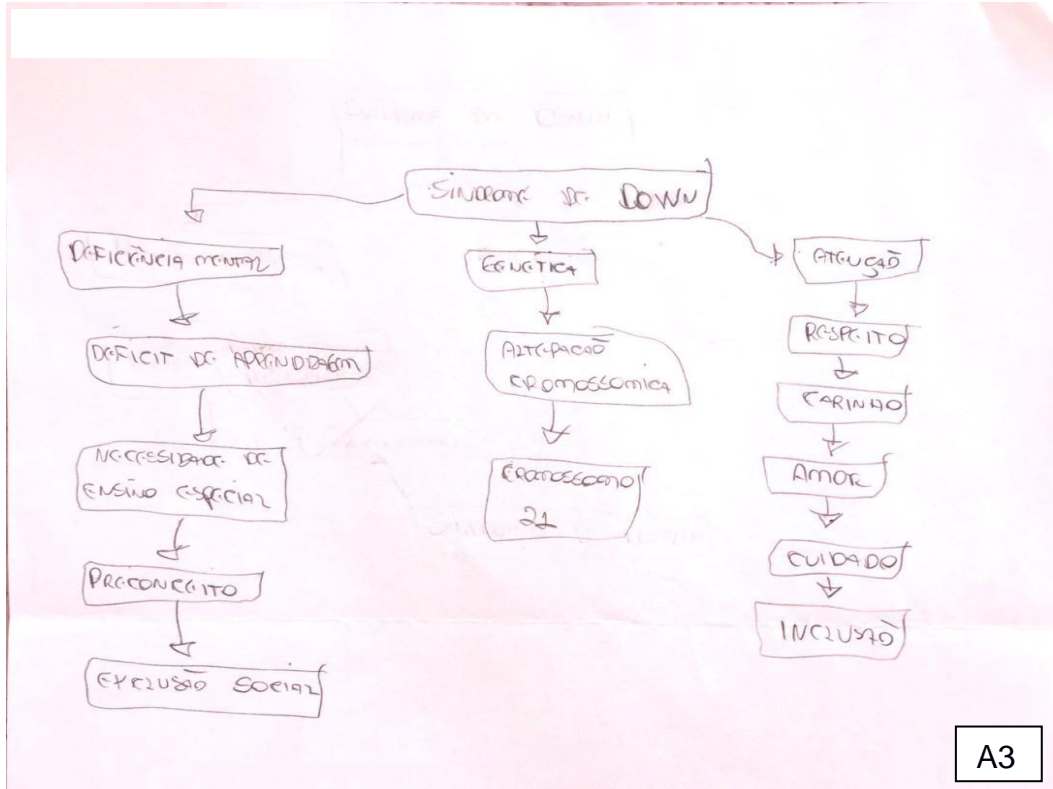 SÍNDROME DE DOWN
DEFICIÊNCIA MENTAL
DÉFICIT DE APRENDIZAGEM
NECESSIDADE DE
ENSINO ESPECIAL
PRECONCEITO
EXCLUSÃO SOCIAL
GENÉTICA
ALTERAÇÃO
CROMOSSOMICA
CROMOSSOMO
21
ATENÇÃO
RESPEITO
CARINHO
AMOR
CUIDADO
INCLUSÃO
A3